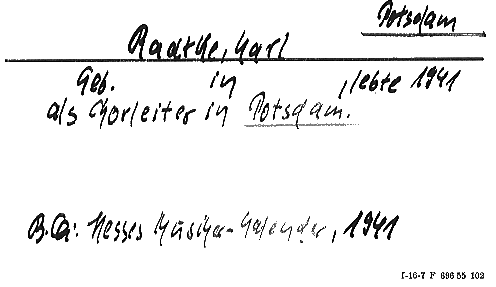 Potsdam
Radtke, Karl
Geb. in , lebte 1941
als Chorleiter in Potsdam.
B.Qu.: Hesses Musiker-Kalender, 1941
I-16-7 F 696 55 102